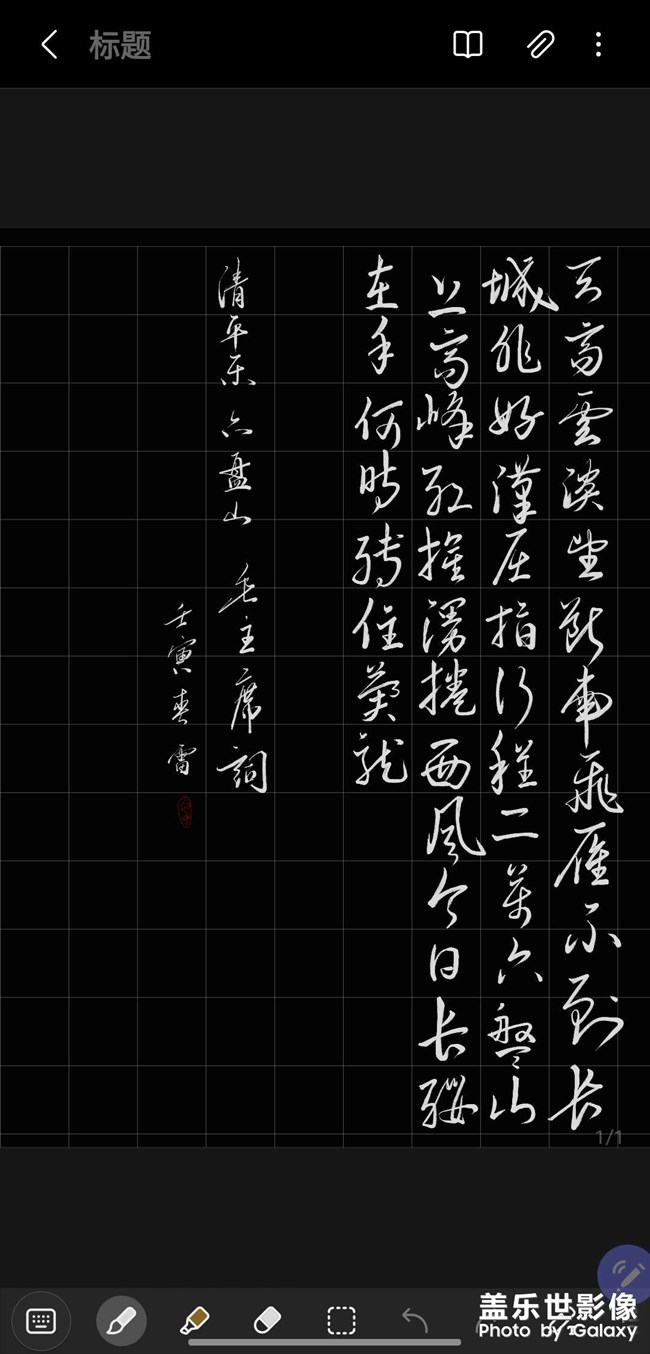 标题
天高雲淡望断南飛雁不到长
城非好漢屈指行程二萬六盤山
上高峰红旗漫捲西風今日长缨
在手何時缚住蒼龍
清平乐 六盘山 毛主席詞
壬寅春雷
1/1
盖乐世影像
Photo by Galaxy